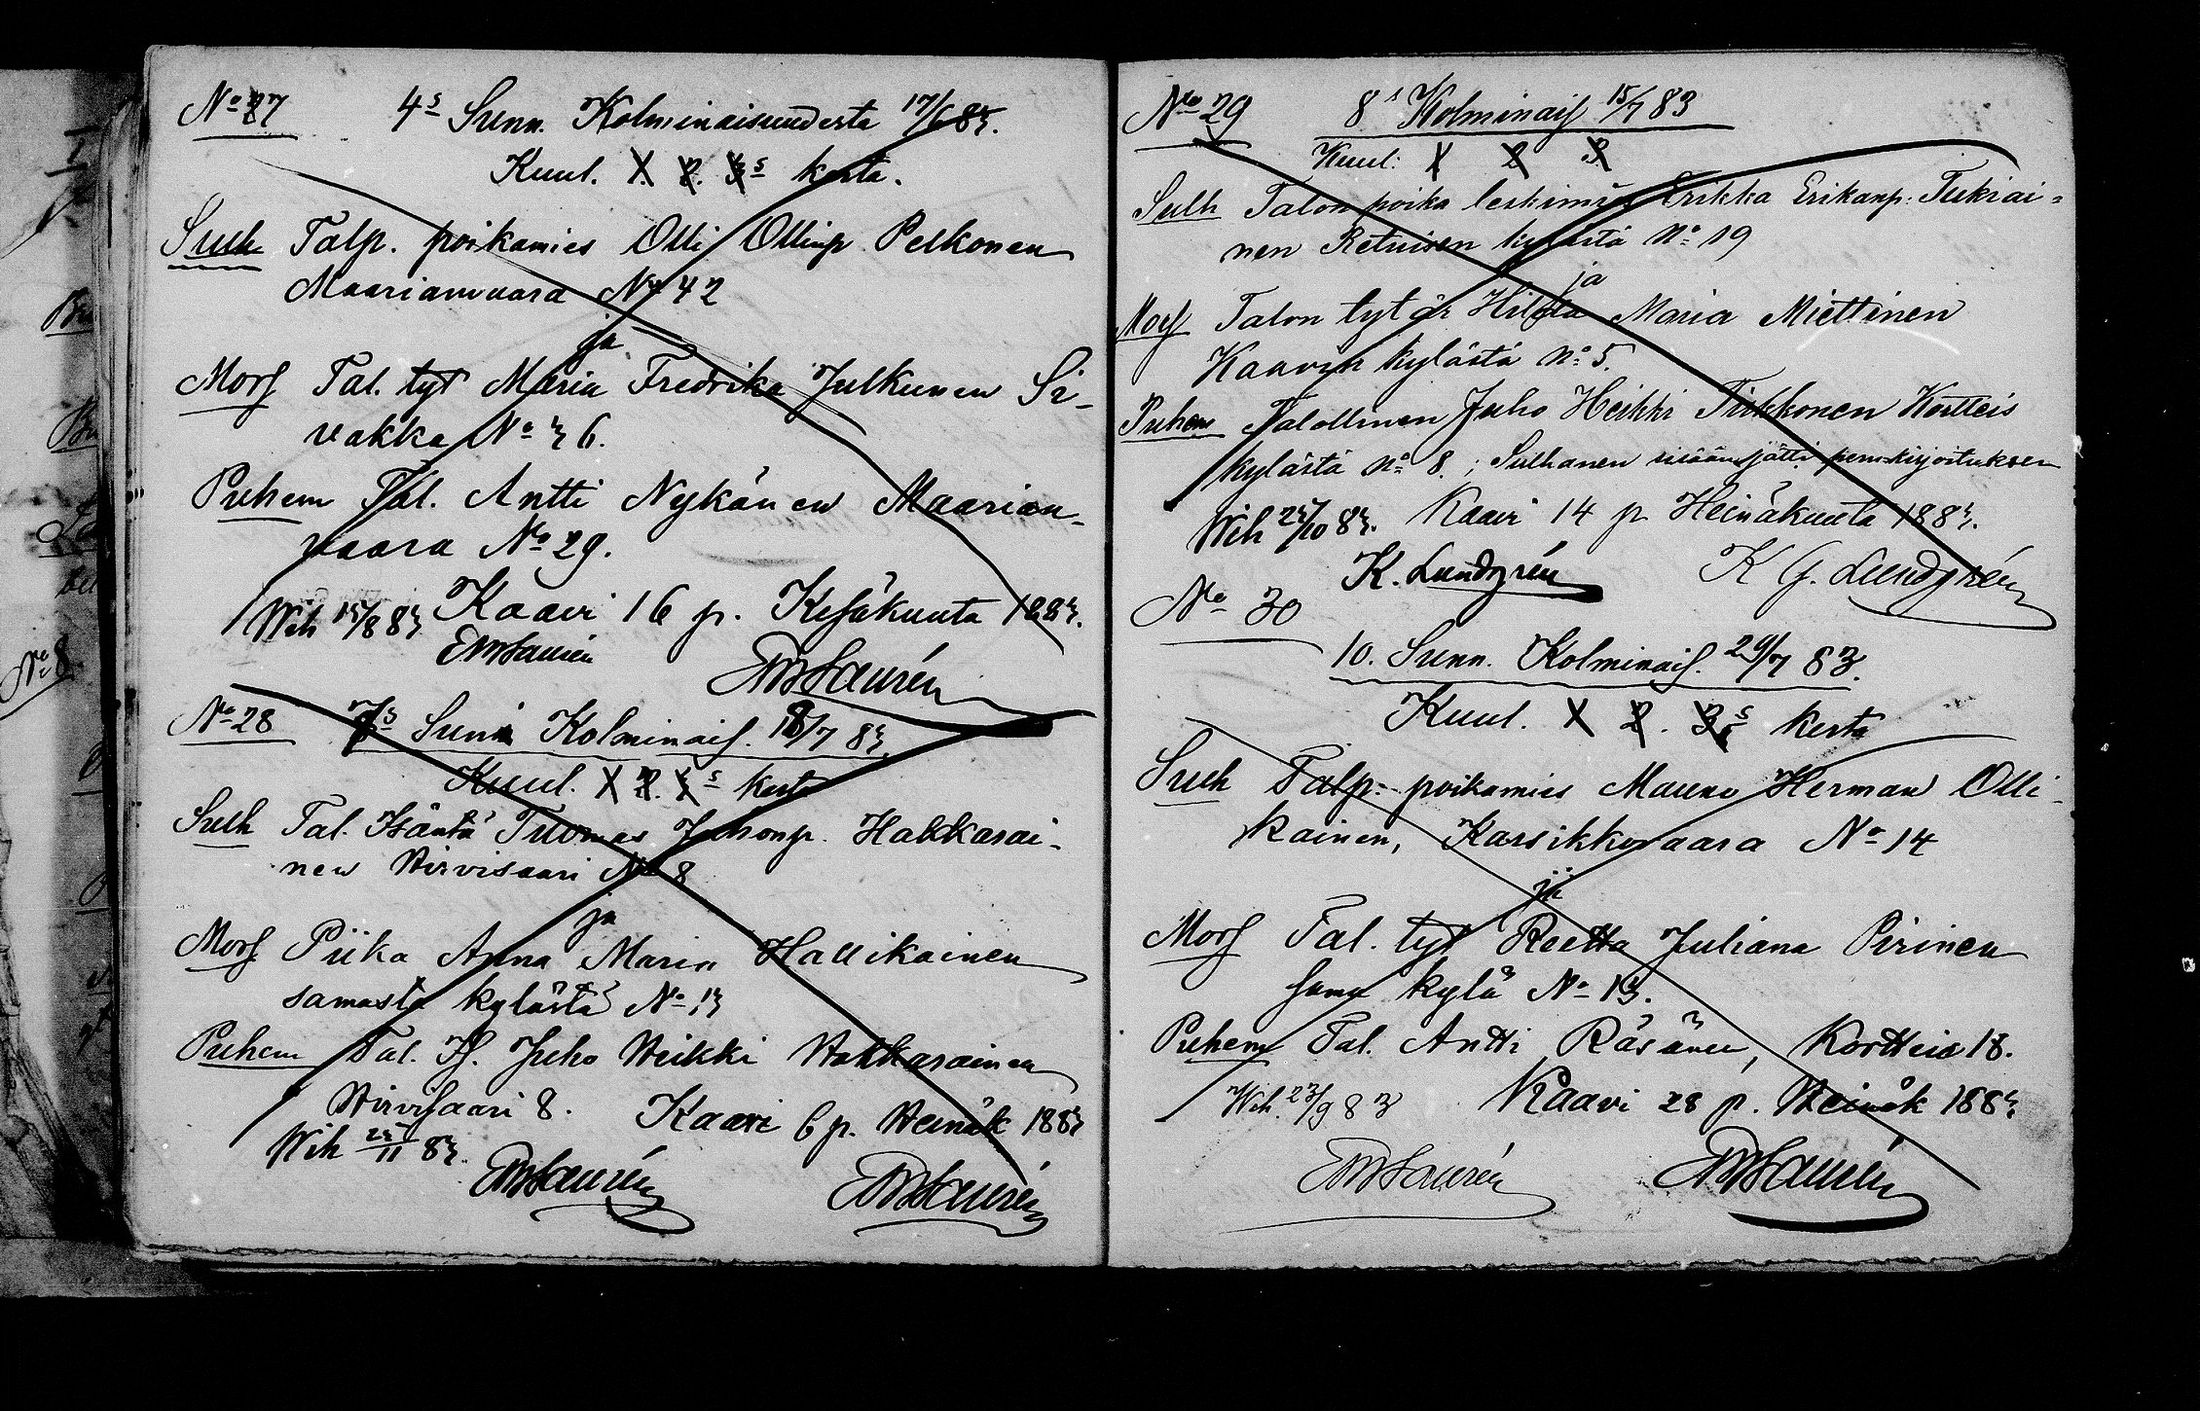 No 27 4s Sunn. Kolminaisuudesta 17/6 83.
Kuul. 1. 2. 3s kerta.
Sulh Talp. poikamies Olli Ollinp Pelkonen
Maarianvaara No 42
ja
Mors Tal. tyt Maria Fredrika Julkunen Si-
vakka No 36.
Puhem Tal. Antti Nykänen Maarian-
vaara No 29.
Wih 15/8 83 Kaavi 16 p. Kesäkuuta 1883.
EWLaurén
EWLaurén
No 28 7s Sunn Kolminais. 8/7 83
Kuul. 1 2. 3s kert
Sulh Tal. Isäntä Tuomas Juhonp. Hakkarai-
nen Hirvisaari No 8
ja
Mors Piika Anna Maria Hallikainen
samasta kylästä No 13
Puhem Tal. Is. Juho Heikki Hakkarainen
Hirvisaari 8. Kaavi 6 p. Heinäk 1883
Wih 25/11 83.
EWLaurén EWLaurén
No 29 8s Kolminais 15/7 83
Kuul: 1 2 3.
Sulh Talon poika leskimies Erikka Erikanp: Tukiai=
nen Retuisen kylästä No 19
ja
Mors Talon tytär Hilda Maria Miettinen
Kaavin kylästä No 5.
Puhem Talollinen Juho Heikki Tirkkonen Kortteis
kylästä No 8.; Sulhanen sisäänjätti perukirjoituksen
Wih 25/10 83. Kaavi 14 p Heinäkuuta 1883.
K. Lundgrén K G. Lundgrén
No 30
10. Sunn. Kolminais. 29/7 83.
Kuul. 1 2. 3s kerta
Sulh Talp: poikamies Mauno Herman Olli-
kainen, Karsikkovaara No 14
ja
Mors Tal. tyt Reetta Juliana Pirinen
sama kylä No 13.
Puhem Tal. Antti Räsänen, Kortteis 18.
Wih. 23/9 83 Kaavi 28 p. Heinäk 1883
EWLaurén EWLaurén